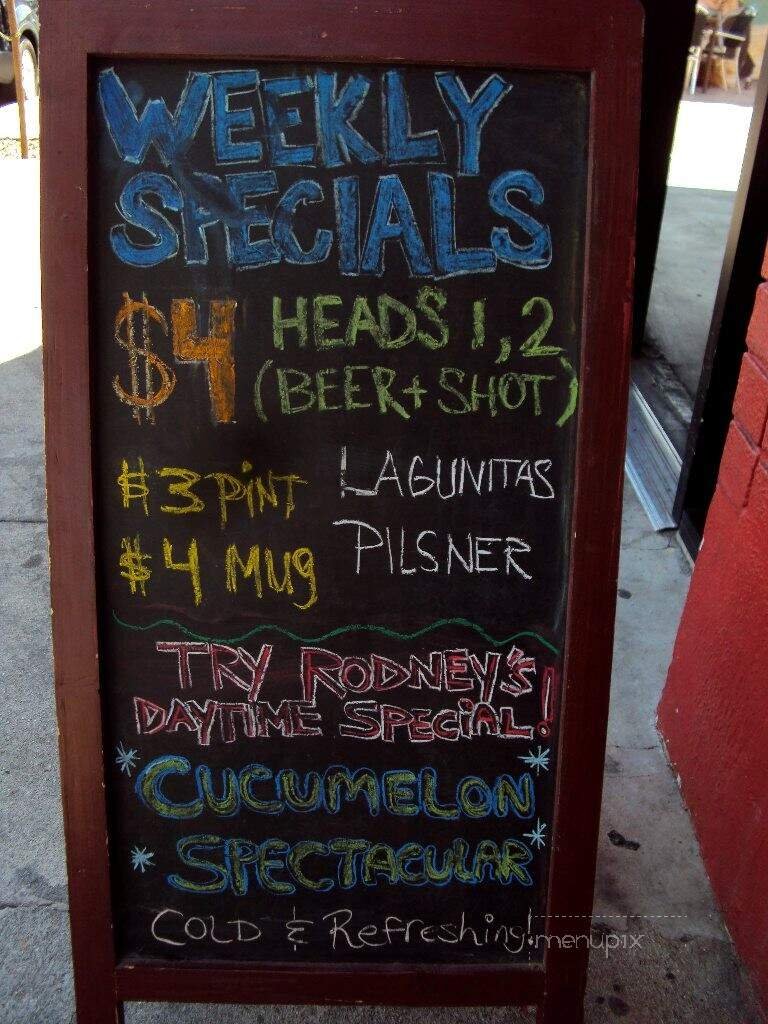 WEEKLY
SPECIALS
$4 HEADS 1,2
(BEER + SHOT)
$3 PINT LAGUNITAS
$4 MUG PILSNER
TRY RODNEY'S
DAYTIME SPECIAL!
CUCUMELON
SPECTACULAR
COLD & Refreshing!
menupix